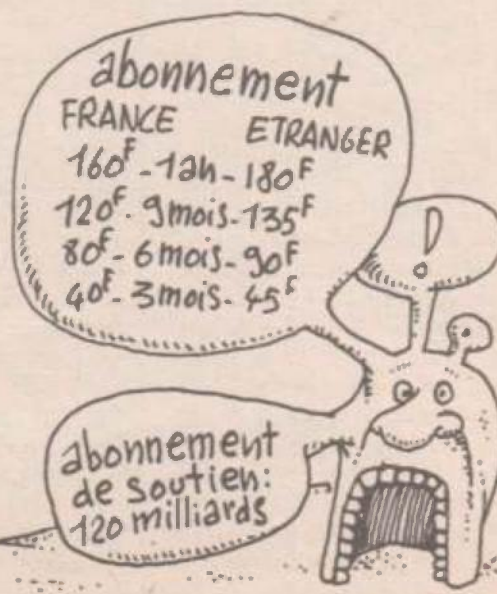 abonnement
FRANCE ETRANGER
160F - 1an - 180F
120F - 9mois - 135F
80F - 6mois - 90F
40F - 3mois - 45F
!
abonnement
de soutien:
120 milliards